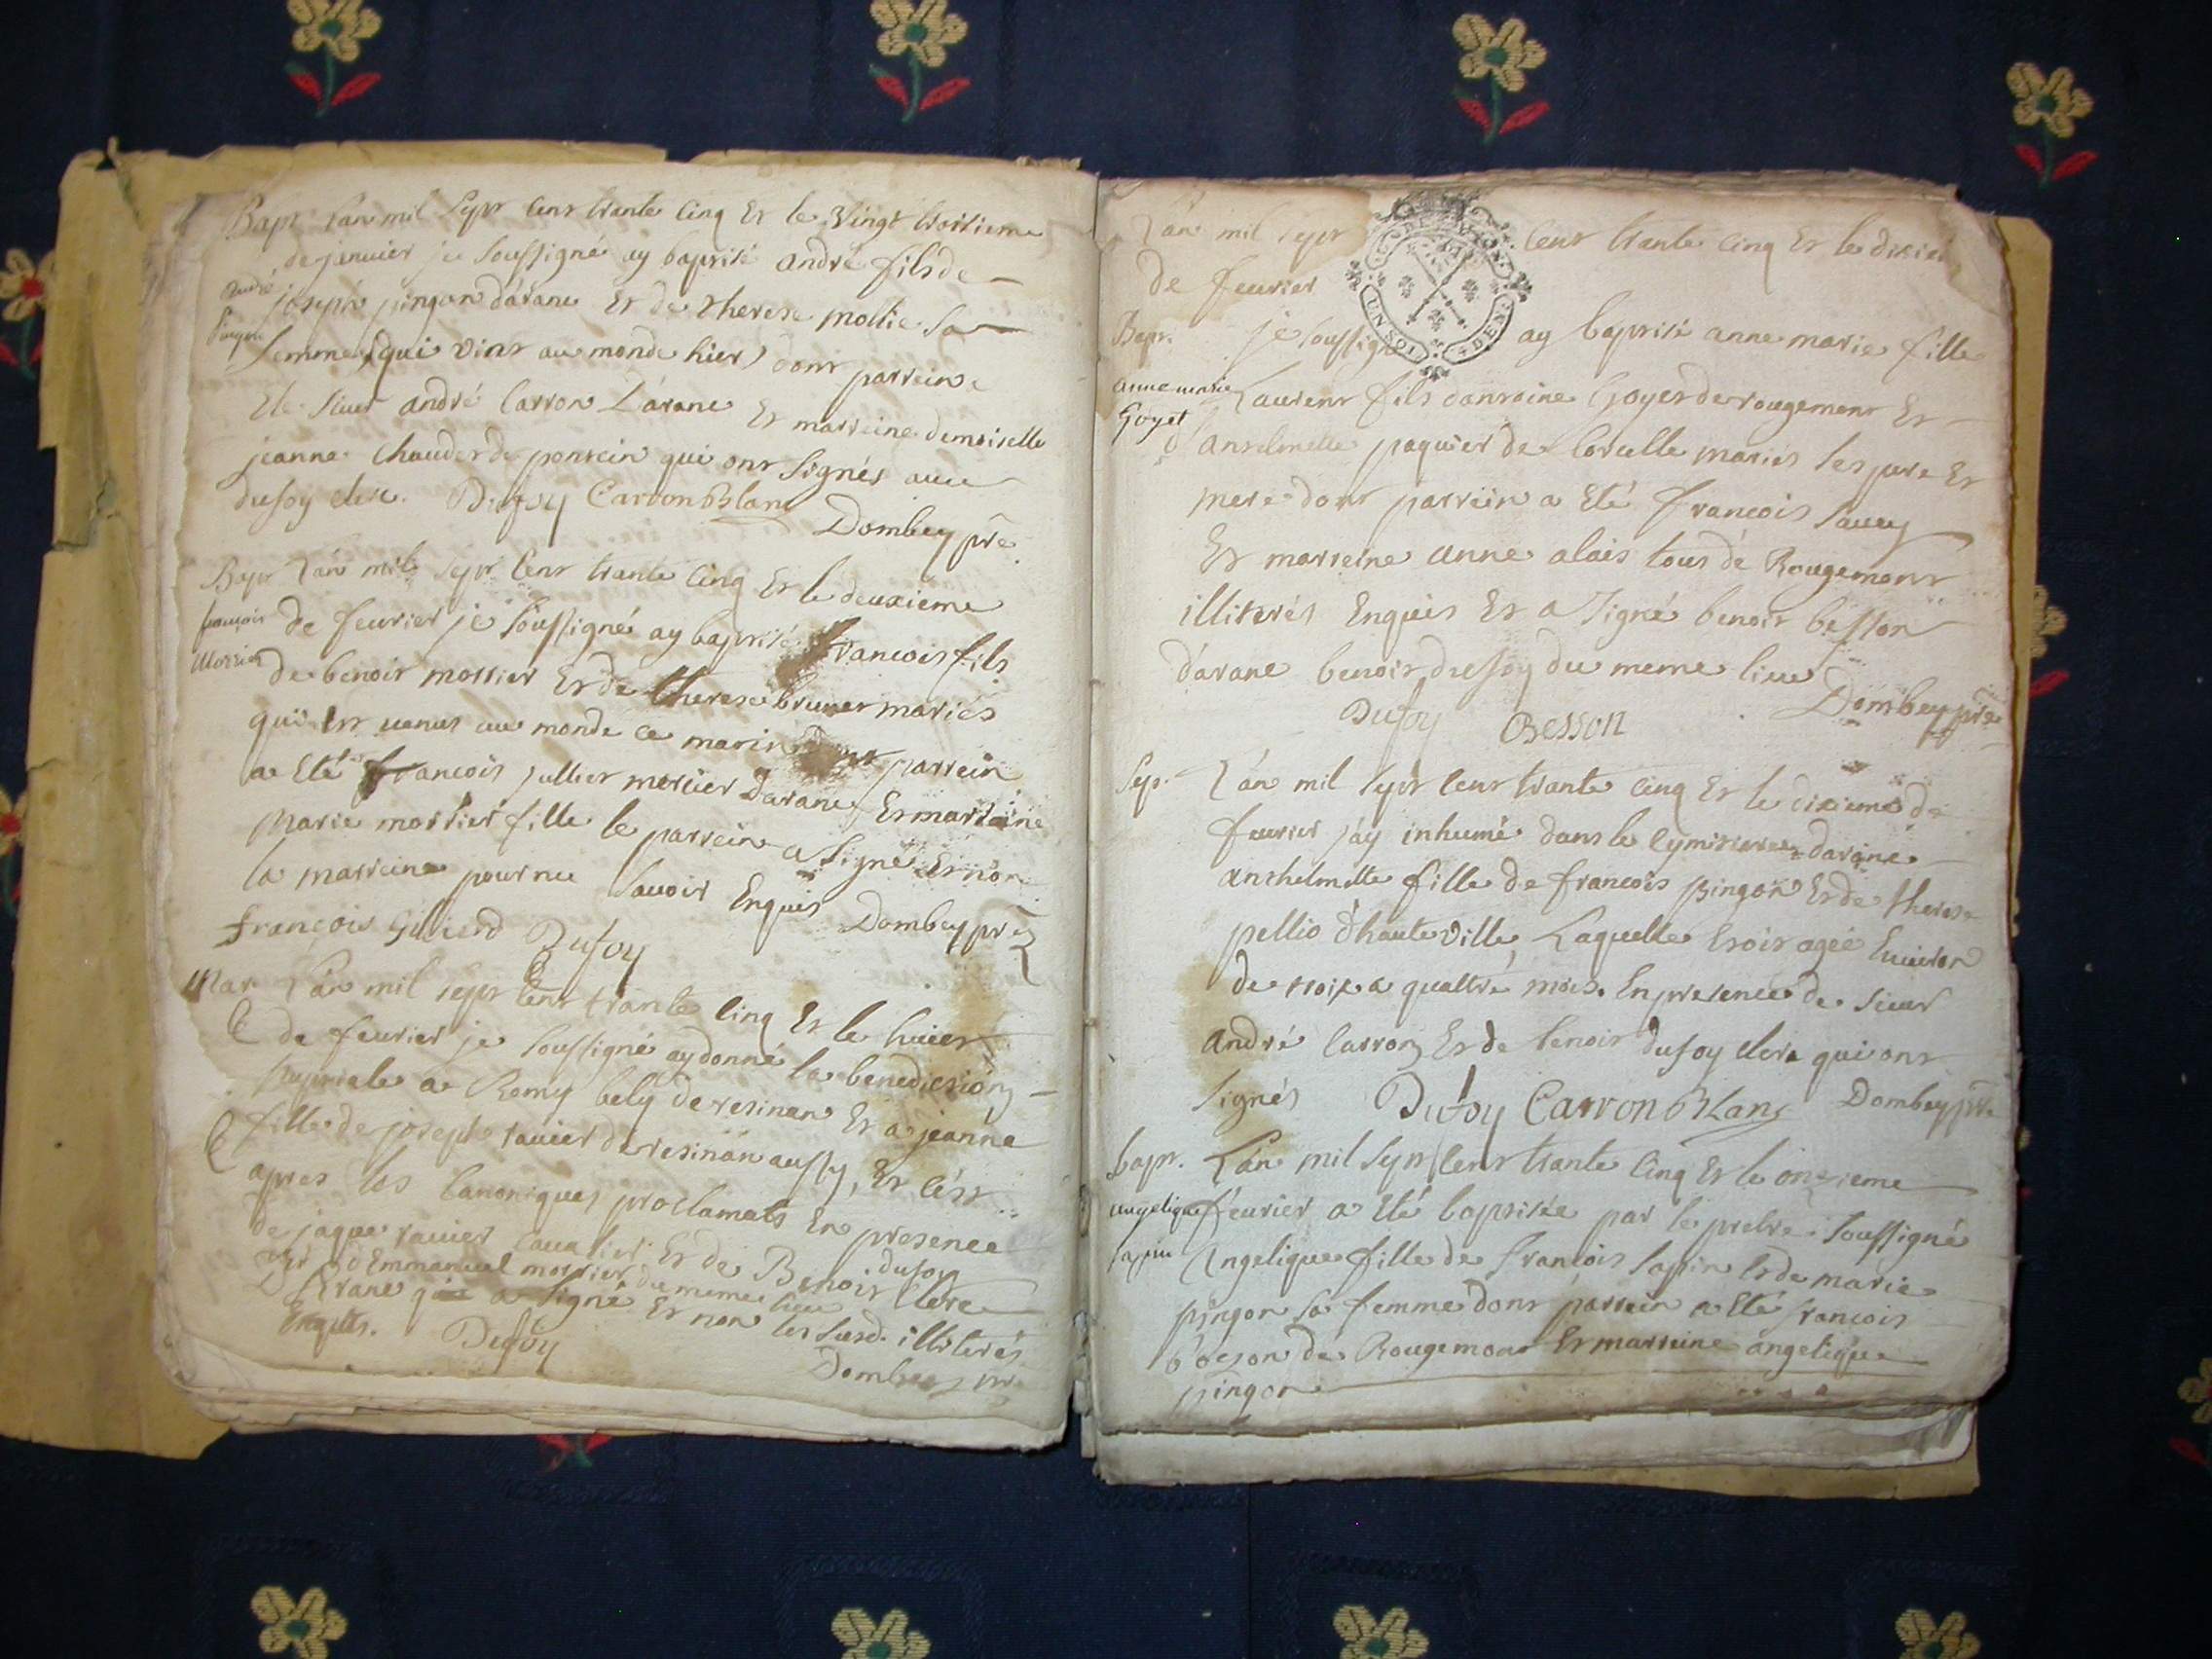 Bapt. L'an mil sept cent trante cinq et le vingt troisieme
de janvier je soussigné ay baptisé andré fils de
andré
pingon
joseph pingon d'arane et de therese mollie sa
femme (qui vint au monde hier) dont parrein
été sieur andré Carron d'arane et marreine demoiselle
jeanne Chauder de poncin qui ont signés avec
dufoy clerc. Dufoy Carron Blanc Dombey ptre
Bapt L'an mil sept cent trante cinq et le deuxieme
françois
Morrier
de fevrier je soussigné ay baptisé françois fils
de benoit morrier et de therese brunet mariés
qui est venus au monde ce matin dont parrein
a été françois jullier mercier d'arane et marreine
Marie morrier fille le parrein a signé et non
la marreine pour ne savoir enquis Dombey ptre
françois Dufoy
Mar. L'an mil sept cent trante cinq et le huict
de fevrier je soussigné ay donné la benediction
nuptiale a Remy bely de resinan et a jeanne
fille de joseph ravier de resinan aussy, et c'est
apres les canoniques proclamats en presence
de jaque ravier cavalier et de Benoit dufoy clerc
et d'Emmanuel morrier du meme lieu
d'arane qui a signé et non les susd. illiterés
enquis. Dufoy
Dombey ptre
L'an mil sept cent trante cinq et le dixie
de fevrier
Bapt. je soussigné ay baptisé anne marie fille
anne marie
Goyet
Laurent fils d'antoine Goyet de rougemont et
d'anthelmette paquier de Corcelle mariés ses pere et
mere dont parrein a été françois savey
et marreine anne alais tous de Rougemont
illiterés enquis et a signé benoit besson
d'arane benoit dufoy du meme lieu
Dufoy Besson Dombey ptre
Sep. L'an mil sept cent trante cinq et le dixieme de
fevrier j'ay inhumé dans le cymitiere d'arane
anthelmette fille de françois pingon et de therese
pellio d'hauteville, Laquelle etoit agée environ
de trois a quattre mois. En presence de sieur
andré Carron et de benoit dufoy clerc qui ont
signés Dufoy Carron Blanc Dombey ptre
bapt. L'an mil sept cent trante cinq et le onzieme
angelique
sappin
fevrier a été baptisée par le prebtre soussigné
Angelique fille de françois sappin et de marie
pingon sa femme dont parrein a été françois
de Rougemont et marreine angelique
pingon
UN SOL 4 DEN.